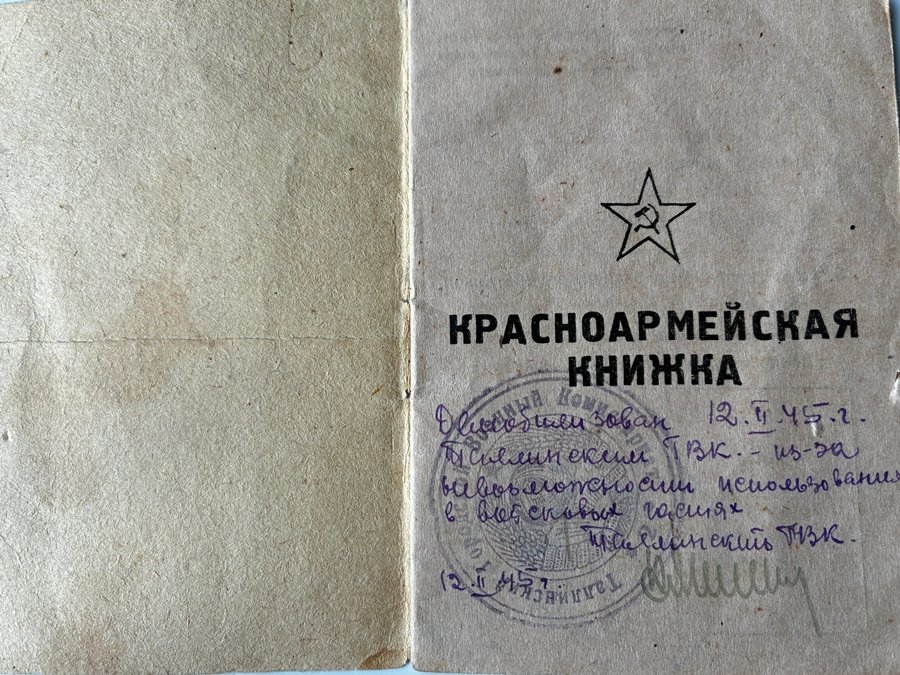 КРАСНОАРМЕЙСКАЯ
КНИЖКА
Демобилизован 12.II.45.г.
Таллинским ГВК. - из-за
невозможности использования
в войсковых частях
Таллинский ГВК.
12.II.45г.
Военный Комис
Таллинск